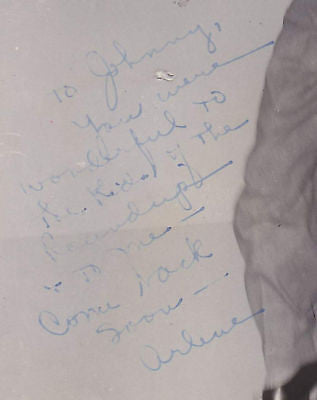 To Johnny,
You were
wonderful to
the kids of the
Roundup
+ to me—
Come back
soon—
Arlene